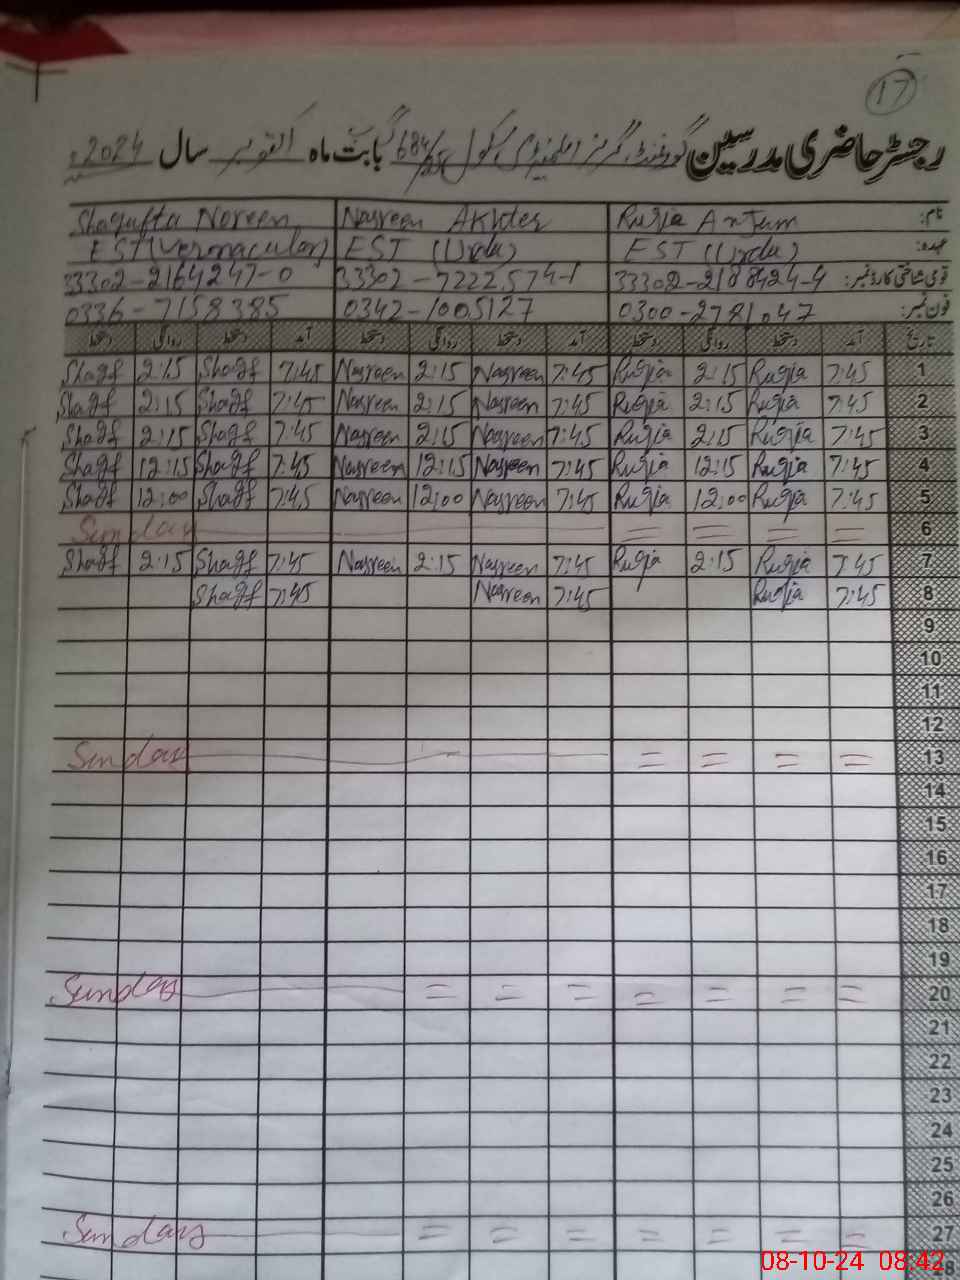 17
رجسٹر حاضری مدرسین گورنمنٹ گرلز ایلیمنٹری سکول 684/ گ ب بابت ماہ اکتوبر سال 2024ء
نام: Ruqia Anjum Nasreen Akhter Shagufta Noreen
عہدہ: EST (Urdu) EST (Urdu) EST (Vernacular)
قومی شناختی کارڈ نمبر: 33302-2188424-4 33302-7222574-1 33302-2164247-0
فون نمبر: 0300-2781047 0342-1005127 0336-7158385
تاریخ آمد دستخط روانگی دستخط آمد دستخط روانگی دستخط آمد دستخط روانگی دستخط
1 7:45 Ruqia 2:15 Ruqia 7:45 Nasreen 2:15 Nasreen 7:45 Shagf 2:15 Shagf
2 7:45 Ruqia 2:15 Ruqia 7:45 Nasreen 2:15 Nasreen 7:45 Shagf 2:15 Shagf
3 7:45 Ruqia 2:15 Ruqia 7:45 Nasreen 2:15 Nasreen 7:45 Shagf 2:15 Shagf
4 7:45 Ruqia 12:15 Ruqia 7:45 Nasreen 12:15 Nasreen 7:45 Shagf 12:15 Shagf
5 7:45 Ruqia 12:00 Ruqia 7:45 Nasreen 12:00 Nasreen 7:45 Shagf 12:00 Shagf
6 = = = = Sunday
7 7:45 Ruqia 2:15 Ruqia 7:45 Nasreen 2:15 Nasreen 7:45 Shagf 2:15 Shagf
8 7:45 Ruqia 7:45 Nasreen 7:45 Shagf
9
10
11
12
13 = = = = Sunday
14
15
16
17
18
19
20 = = = = = = = Sunday
21
22
23
24
25
26
27 = = = = = = = Sunday
28
08-10-24 08:42